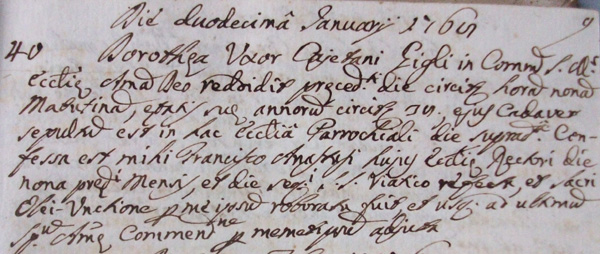 Die duodecimâ January 176
40 Dorothea Uxor Cajetani Gigli in Comm. S. M.
Ecclie Anãm Deo reddidit præced. die circiter horam nonam
Matutinã, ætatis suæ annorum circiter 35, ejus Cadaver
sepultũ est in hac Ecclia Parrochiali die suprasc. Con-
fessa est mihi Francisco hujus Eccliæ Rectori die
nona præd. Mensis, et die seq. S. Viatico refecta, et sacri
Olei-Unctione p me ipsũ roborata fuit et usq. ad ultimũ
Spũ Animæ Commend.ne p memetipsũ adjuta